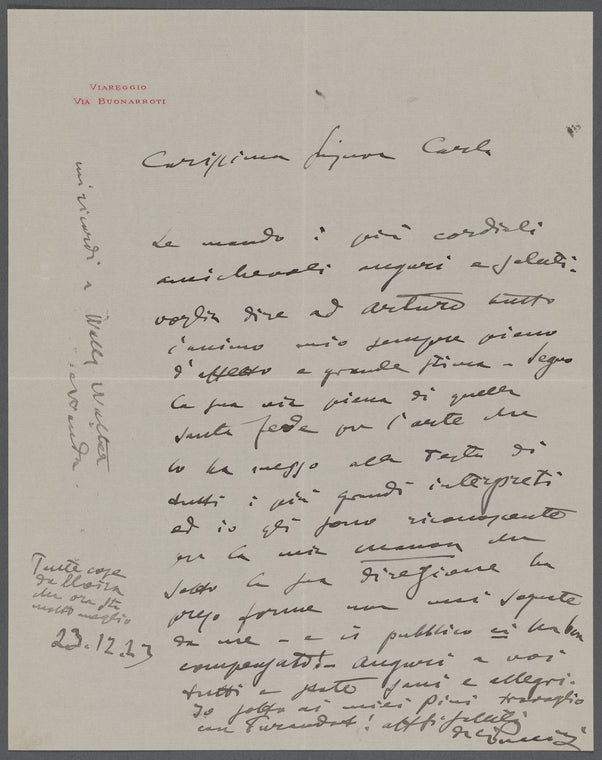 VIAREGGIO
VIA BUONARROTI
Carissima Signora Carla
Le mando i più cordiali
amichevoli auguri e saluti.
voglia dire ad Arturo tutto
l'animo mio sempre pieno
d'affetto e grande stima – Seguo
la sua vita piena di quella
santa fede per l'arte che
lo ha messo alla testa di
tutti i più grandi interpreti
ed io gli sono riconoscente
per la mia Manon che
sotto la sua direzione ha
preso forme non mai sapute
da me – e il pubblico vi ha ben
compensati – Auguri a voi
tutti e state sani e allegri.
Io sotto ai miei pini travaglio
con Turandot! affti saluti
di Puccini
mi ricordi a Wally Walter
e Wanda.
Tante cose
da Elvira
che ora sta
molto meglio
23.12.23